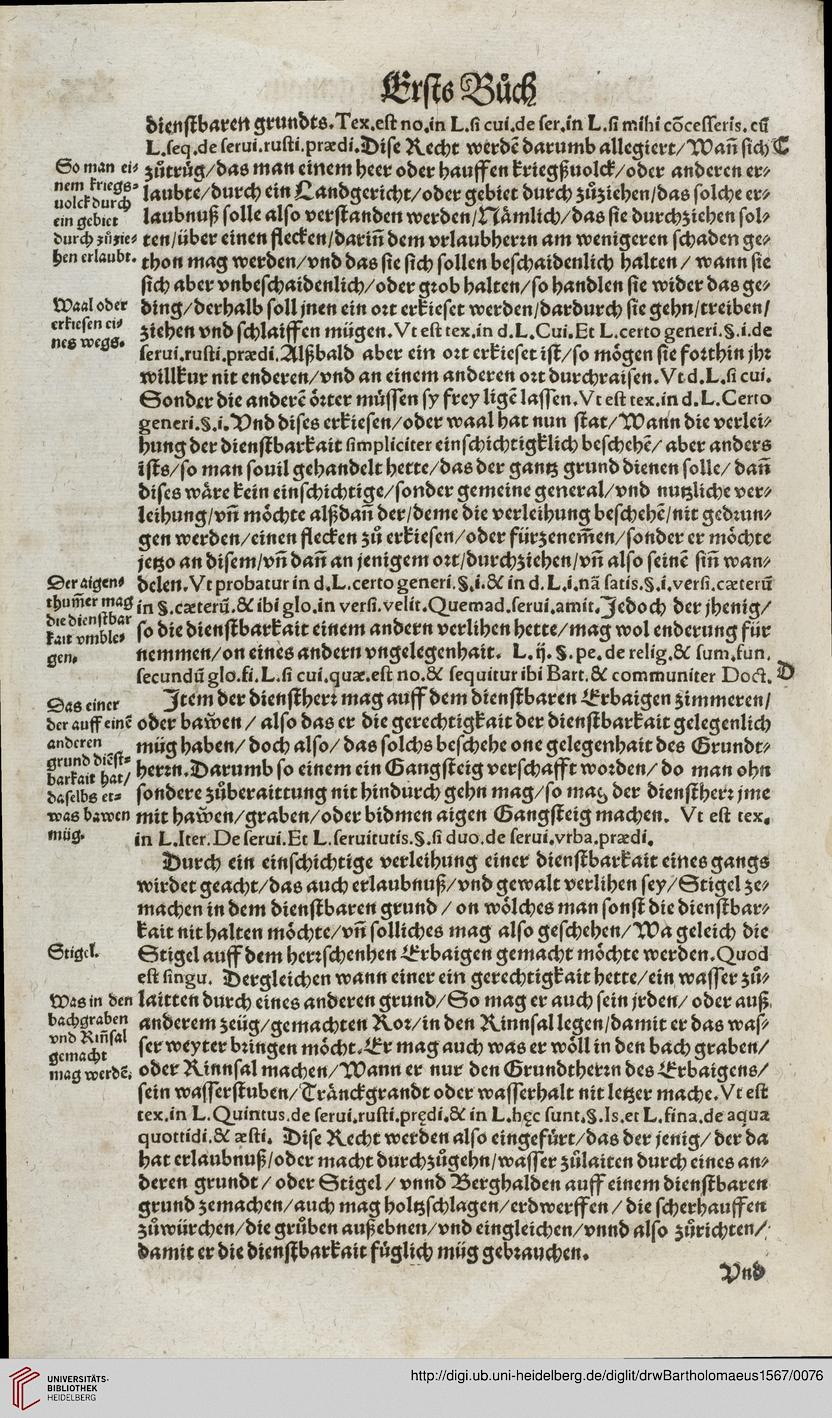 Ersts Bůch
dienstbaren grundts. Tex.est no.in L.si cui.de ser.in L.si mihi cõcesseris. cũ
L.seq.de serui.rusti.prædi. Dise Recht werdẽ darumb allegiert/ Wañ sich C
So man ei⸗
nem kriegs⸗
uolck durch
ein gebiet
durch zůzie⸗
hen erlaubt.
zůtrüg/ das man einem heer oder hauffen kriegßuolck/ oder anderen er⸗
laubte/ durch ein Landgericht/ oder gebiet durch zůziehen/ das solche er⸗
laubnuß solle also verstanden werden/ Nämlich/ das sie durchziehen sol⸗
ten/ über einen flecken/ dariñ dem vrlaubherrn am wenigeren schaden ge⸗
thon mag werden/ vnd das sie sich sollen beschaidenlich halten/ wann sie
sich aber vnbeschaidenlich/ oder grob halten/ so handlen sie wider das ge⸗
Waal oder
erkiesen ei⸗
nes wegs.
ding/ derhalb soll jnen ein ort erkieset werden/ dardurch sie gehn/ treiben/
ziehen vnd schlaiffen mügen. Vt est tex.in d.L.Cui.Et L.certo generi.§.i.de
serui.rusti.prædi. Alßbald aber ein ort erkieset ist/ so mögen sie forthin jhr
willkur nit enderen/ vnd an einem anderen ort durchraisen. Vt d.L.si cui.
Sonder die anderẽ örter müssen sy frey ligẽ lassen. Vt est tex.in d.L.Certo
generi.§.i. Vnd dises erkiesen/ oder waal hat nun stat/ Wann die verlei⸗
hung der dienstbarkait simpliciter einschichtigklich beschehẽ/ aber anders
ists/ so man souil gehandelt hette/ das der gantz grund dienen solle/ dañ
dises wäre kein einschichtige/ sonder gemeine general/ vnd nutzliche ver⸗
leihung/ vñ möchte alßdañ der/ deme die verleihung beschehẽ/ nit gedrun⸗
gen werden/ einen flecken zů erkiesen/ oder fürzenem̃en/ sonder er möchte
jetzo an disem/ vñ dañ an jenigem ort/ durchziehen/ vñ also seinẽ siñ wan⸗
Der aigen⸗
thum̃er mag
die dienstbar
kait vmble⸗
gen.
delen. Vt probatur in d.L.certo generi.§.i.& in d.L.i.nã satis.§.i.versi.cæterũ
in §.cæterũ.& ibi glo.in versi.velit.Quemad.serui.amit. Jedoch der jhenig/
so die dienstbarkait einem andern verlihen hette/ mag wol enderung für
nemmen/ on eines andern vngelegenhait. L.ij.§.pe.de relig.& sum.fun.
secundũ glo.fi.L.si cui.quæ.est no.& sequitur ibi Bart.& communiter Doct. D
Das einer
der auff einẽ
anderen
grund diẽst⸗
barkait hat/
daselbs et⸗
was bawen
müg.
Item der dienstherr mag auff dem dienstbaren Erbaigen zimmeren/
oder baẅen/ also das er die gerechtigkait der dienstbarkait gelegenlich
müg haben/ doch also/ das solchs beschehe one gelegenhait des Grundt⸗
herrn. Darumb so einem ein Gangsteig verschafft worden/ do man ohn
sondere zůberaittung nit hindurch gehn mag/ so mag der dienstherr jme
mit haẅen/ graben/ oder bidmen aigen Gangsteig machen. Vt est tex.
in L.Iter.De serui.Et L.seruitutis.§.si duo.de serui.vrba.prædi.
Durch ein einschichtige verleihung einer dienstbarkait eines gangs
wirdet geacht/ das auch erlaubnuß/ vnd gewalt verlihen sey/ Stigel ze⸗
machen in dem dienstbaren grund/ on wölches man sonst die dienstbar⸗
kait nit halten möchte/ vñ solliches mag also geschehen/ Wa geleich die
Stigel.
Stigel auff dem herrschenhen Erbaigen gemacht möchte werden. Quod
est singu. Dergleichen wann einer ein gerechtigkait hette/ ein wasser zů⸗
Was in den
bachgraben
vnd Riñsal
gemacht
mag werdẽ.
laitten durch eines anderen grund/ So mag er auch sein jrden/ oder auß
anderem zeüg/ gemachten Ror/ in den Rinnsal legen/ damit er das was⸗
ser weyter bringen möcht. Er mag auch was er wöll in den bach graben/
oder Rinnsal machen/ Wann er nur den Grundtherrn des Erbaigens/
sein wasserstuben/ Tränckgrandt oder wasserhalt nit letzer mache. Vt est
tex.in L.Quintus.de serui.rusti.prędi.& in L.hęc sunt.§.Is.et L.fina.de aqua
quottidi.& æsti. Dise Recht werden also eingefürt/ das der jenig/ der da
hat erlaubnuß/ oder macht durchzůgehn/ wasser zůlaiten durch eines an⸗
deren grundt/ oder Stigel/ vnnd Berghalden auff einem dienstbaren
grund zemachen/ auch mag holtzschlagen/ erdwerffen/ die scherhauffen
zůwürchen/ die grůben außebnen/ vnd eingleichen/ vnnd also zůrichten/
damit er die dienstbarkait füglich müg gebrauchen.
Vnd
UNIVERSITÄTS-
BIBLIOTHEK
HEIDELBERG
http://digi.ub.uni-heidelberg.de/diglit/drwBartholomaeus1567/0076